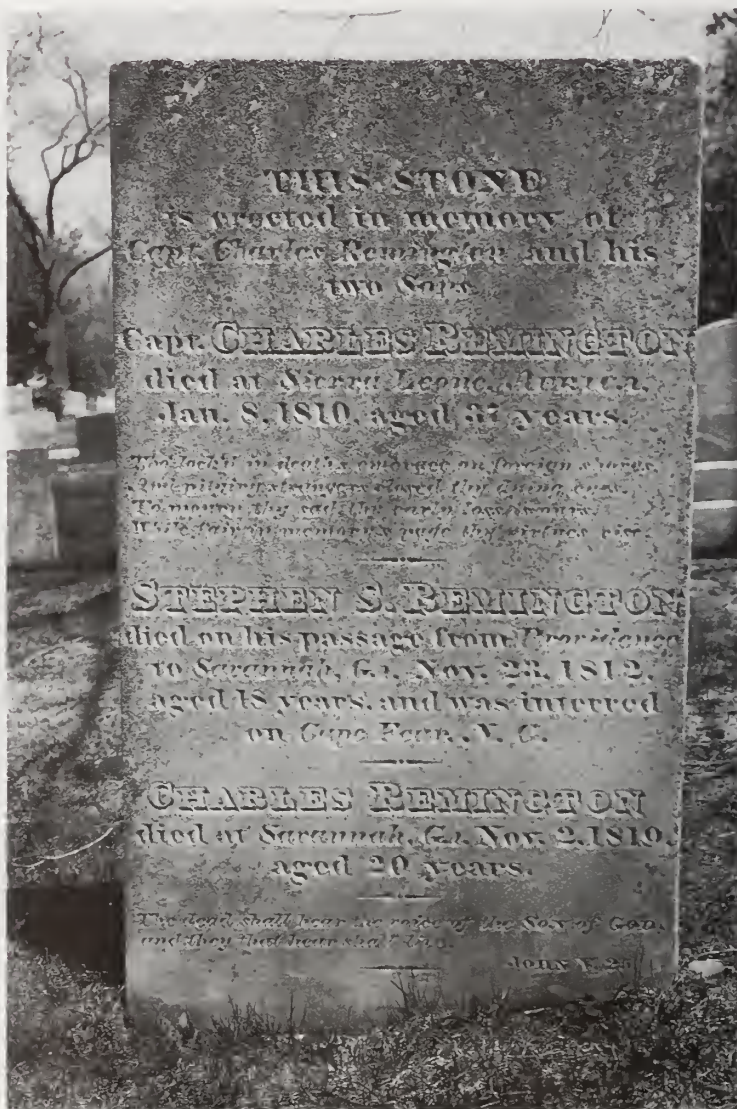 THIS STONE
is erected in memory of
Capt. Charles Remington and his
two Sons
Capt. CHARLES REMINGTON
died at Sierra Leone, AFRICA,
Jan. 8, 1810, aged 37 years.
Tho' lock'd in death's embrace on foreign shores,
And pitying strangers closed thy dying eyes,
To mourn thy sad, thy early loss is ours,
While fair in memory's page thy virtues rise.
STEPHEN S. REMINGTON
died on his passage from Providence
to Savannah, Ga. Nov. 23, 1812,
aged 18 years, and was interred
on Cape Fear, N. C.
CHARLES REMINGTON
died at Savannah, Ga. Nov. 2, 1819,
aged 20 years.
The dead shall hear the voice of the SON of GOD,
and they that hear shall live.
JOHN V. 25